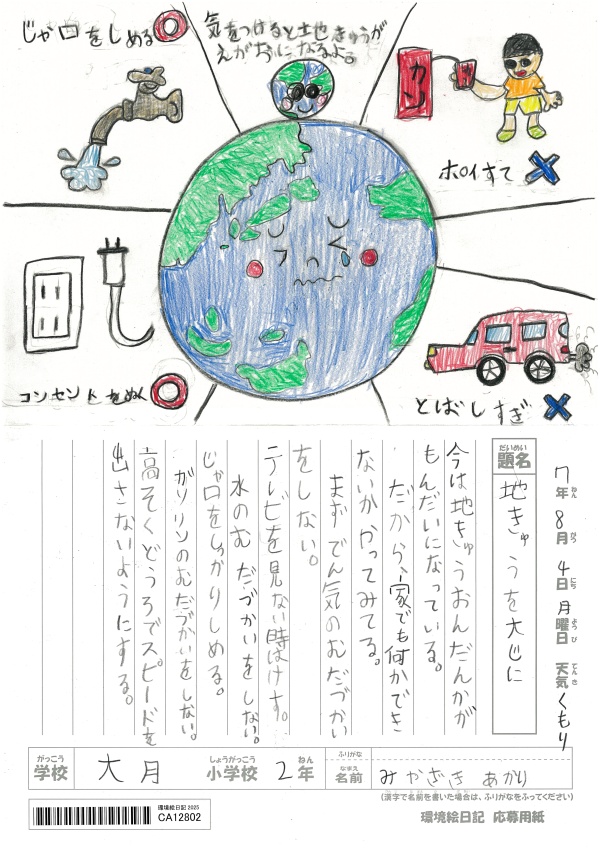 じゃ口をしめる
気をつけると地きゅうが
えがおになるよ。
カン
ポイすて
コンセントをぬく
とばしすぎ
7年 8月 4日 月曜日 天気 くもり
ねん がつ にち ようび てんき
だいめい
題名
地きゅうを大じに
今は地きゅうおんだんかが
もんだいになっている。
だから、家でも何かでき
ないかかってみてる。
まずでん気のむだづかい
をしない。
テレビを見ない時はけす。
水のむだづかいをしない。
じゃ口をしっかりしめる。
ガソリンのむだづかいをしない。
高そくどうろでスピードを
出さないようにする。
がっこう しょうがっこう ねん ふりがな
学校 大月 小学校 2年
なまえ
名前 みかざき あかり
(漢字で名前を書いた場合は、ふりがなをふってください)
環境絵日記 2025
CA12802
環境絵日記 応募用紙